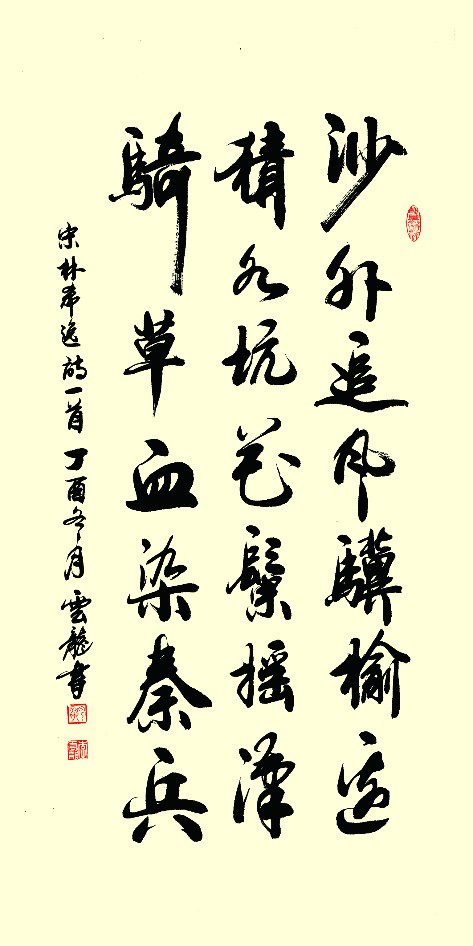 沙外追风驥榆边
積水坑花鬃摇漢
騎草血染秦兵
宋林希逸詩一首丁酉冬月雲龍书